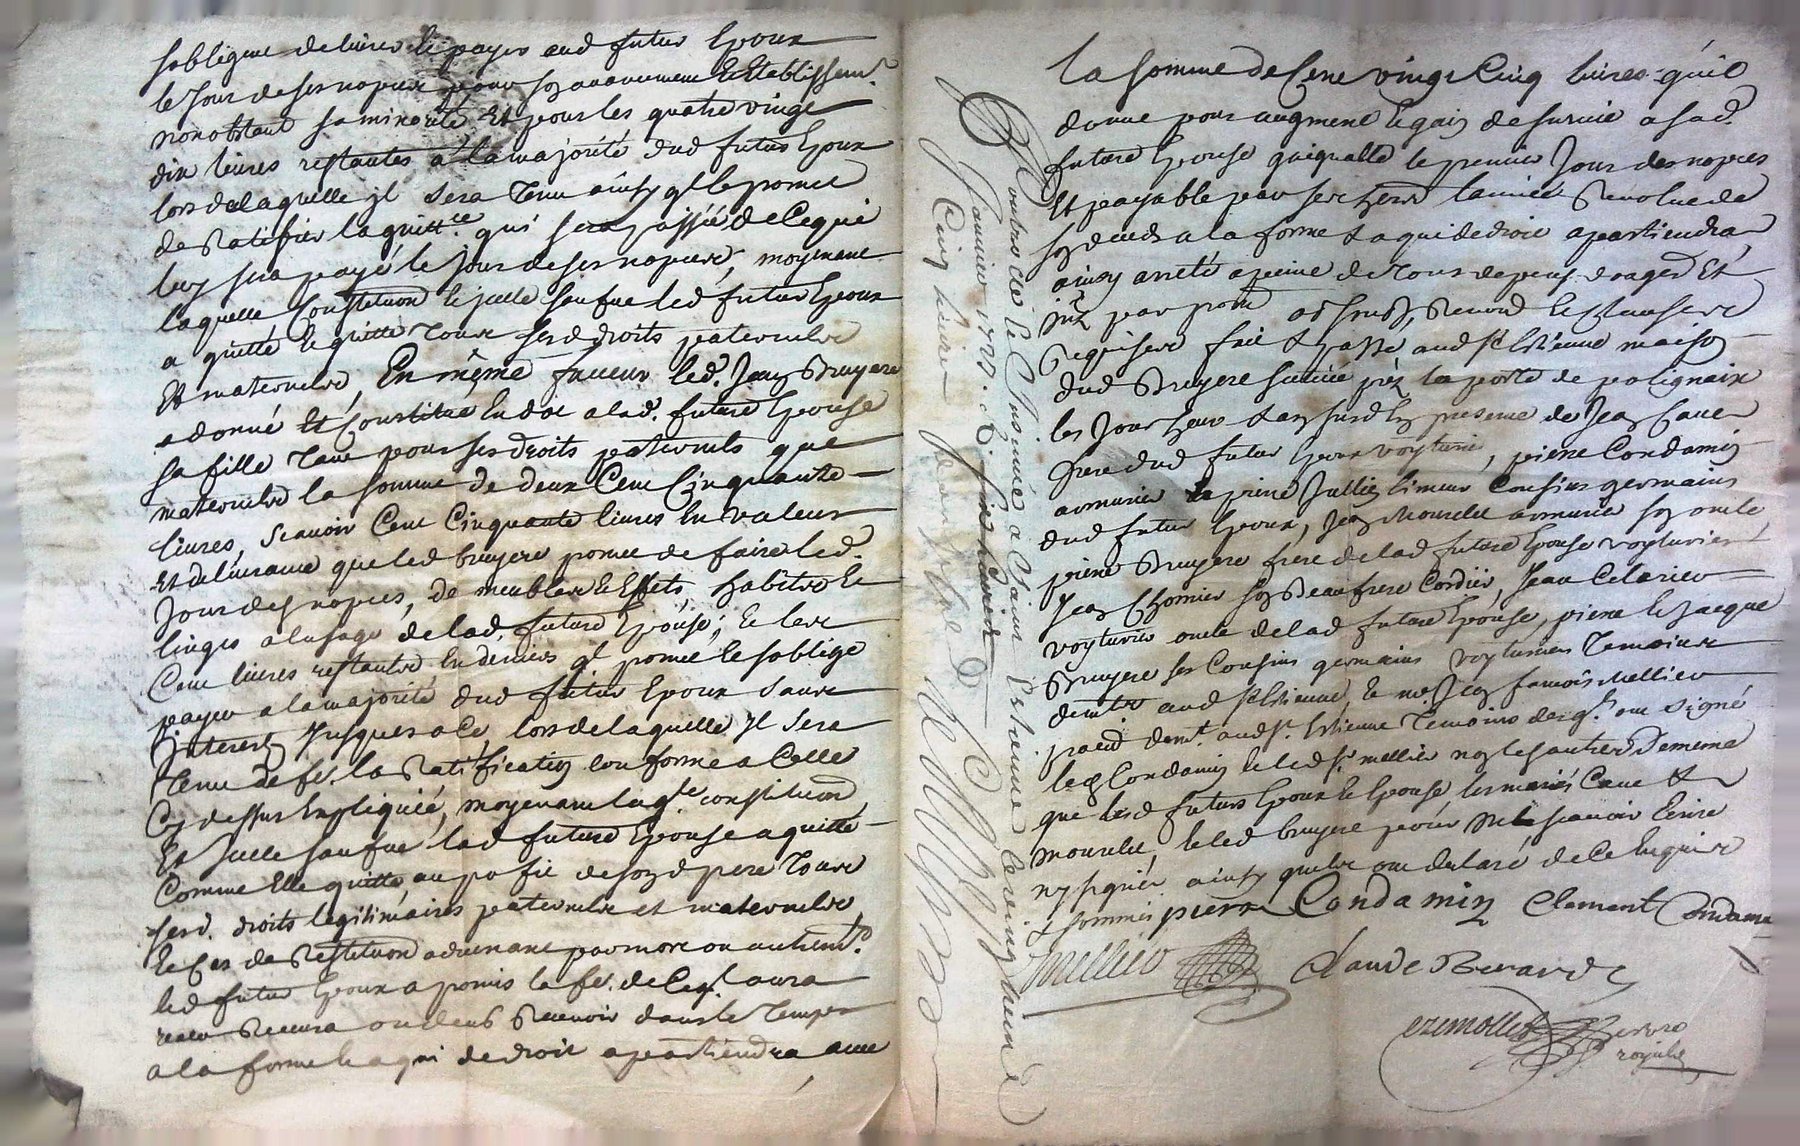 soblige de livrer et payer aud futur Epoux
le Jour de ses nopces pour son avancement Et Etablissemt.
nonobstant sa minorité Et pour les quatre vingt
dix livres restantes a la majorité dud futur Epoux
lors de laquelle il sera tenu ainsy ql le promet
de Ratifier la quittce. qui sera passée de ce qui
luy sera payé le Jour de ses nopces, moyenant
laquelle Constitution Et icelle sauf led futur Epoux
a quitté Et quitte tous sesd droits paternels
Et maternels, En même faveur led. Jean Bruyere
a donné Et Constitué En dot a lad. future Epouse
sa fille tant pour ses droits paternels que
maternels la somme de deux Cent Cinquante
livres, scavoir Cent Cinquante livres En valeur
Et delivrance que led bruyere promet de faire led.
Jour des nopces, de meubles Et Effets, habits Et
linges a lusage de lad. future Epouse; Et les
Cent livres restantes En deniers ql promet Et soblige
payer a la majorité dud futur Epoux sans
Interest Jusques a ce, lors de laquelle Il sera
tenu de fe. la Ratification Conforme a Celle
Cy dessus Expliquée, moyenant laqle. constitution
Et Icelle sauf lad future Epouse a quitté
Comme Elle quitte, au profit de sond pere tous
sesd. droits legitimaires paternels et maternels
Et Cas de Restitution advenant par mort ou autremt.
led futur Epoux a promis la fe. de Ce ql aura
Receu ou deub Recevoir dans le temps
a la forme Et a qui de droit apartiendra avec
Controllé Et Insinué a Saint Estienne Le vingt neuf
Janvier 1720.
Cinq livres
la somme de Cent vingt Cinq livres qu'il
donne pour augment Et gain de survie a sad.
future Epouse gaignable le premier Jour des nopces
Et payable par ses hoirs lannée Revolue de
son deceds a la forme Et a qui de droit apartiendra
ainsy arreté a peine de tous depens domages Et
Requises fait Et passé aud St Estienne maison
dud Bruyere scituée prez la porte de polignaix
les Jour heur Et an susd En presence de Jean Cave
frere dud futur Epoux voyturier, pierre Condamin
armurier Et pierre Jullien limeur Cousins germains
dud futur Epoux, Jean Mourelet armurier son oncle,
pierre Bruyere frere de lad future Epouse voyturier
Jean Chomier son Beaufrere Cordier, Jean Celarier
voyturier oncle de lad future Epouse, pierre Et Jacque
Bruyere ses Cousins germains voyturiers temoins
demts. aud St Estienne, Et me. Jean francois Mellier
pratid demt. aud St. Estienne temoins desqls. ont signé
les Condamin Et led sr mellier non les autres de meme
que lesd futurs Epoux Et Epouse les mariés Cave Et
mourelet, Et led bruyere pour ne scavoir Ecrire
ny signer ainsy quils ont declaré de Ce Enquis
Et sommés pierre Condamin Clement Condamin
Mellier Claude Berard
ezemollet notre
royal